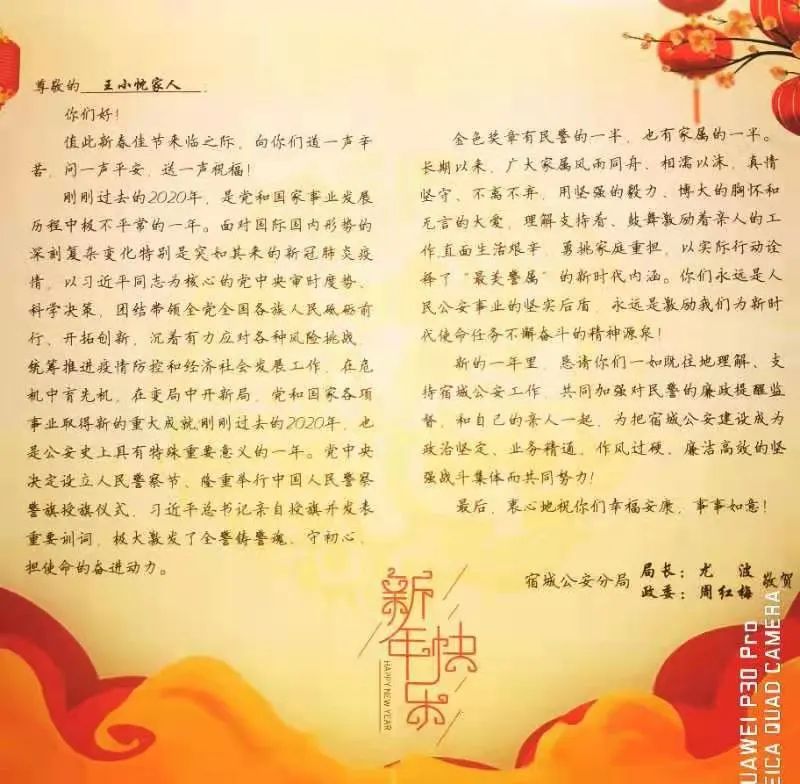 尊敬的 王小忱家人 :
你们好!
值此新春佳节来临之际，向你们道一声辛
苦，问一声平安，送一声祝福!
刚刚过去的2020年，是党和国家事业发展
历程中极不平常的一年。面对国际国内形势的
深刻复杂变化特别是突如其来的新冠肺炎疫
情，以习近平同志为核心的党中央审时度势、
科学决策，团结带领全党全国各族人民砥砺前
行、开拓创新，沉着有力应对各种风险挑战，
统筹推进疫情防控和经济社会发展工作，在危
机中育先机，在变局中开新局，党和国家各项
事业取得新的重大成就刚刚过去的2020年，也
是公安史上具有特殊重要意义的一年。党中央
决定设立人民警察节、隆重举行中国人民警察
警旗授旗仪式，习近平总书记亲自授旗并发表
重要训词，极大激发了全警铸警魂、守初心、
担使命的奋进动力。
金色奖章有民警的一半，也有家属的一半。
长期以来，广大家属风雨同舟、相濡以沫，真情
坚守、不离不弃，用坚强的毅力、博大的胸怀和
无言的大爱，理解支持着、鼓舞激励着亲人的工
作直面生活艰辛，勇挑家庭重担，以实际行动诠
释了“最美警属”的新时代内涵。你们永远是人
民公安事业的坚实后盾，永远是激励我们为新时
代使命任务不懈奋斗的精神源泉!
新的一年里，恳请你们一如既往地理解、支
持宿城公安工作，共同加强对民警的廉政提醒监
督，和自己的亲人一起，为把宿城公安建设成为
政治坚定、业务精通，作风过硬、廉洁高效的坚
强战斗集体而共同努力!
最后，衷心地祝你们幸福安康，事事如意!
宿城公安分局 局长: 尤 波 敬贺
政委: 周红梅
新年快乐
HAPPY NEW YEAR
HUAWEI P30 Pro
LEICA QUAD CAMERA